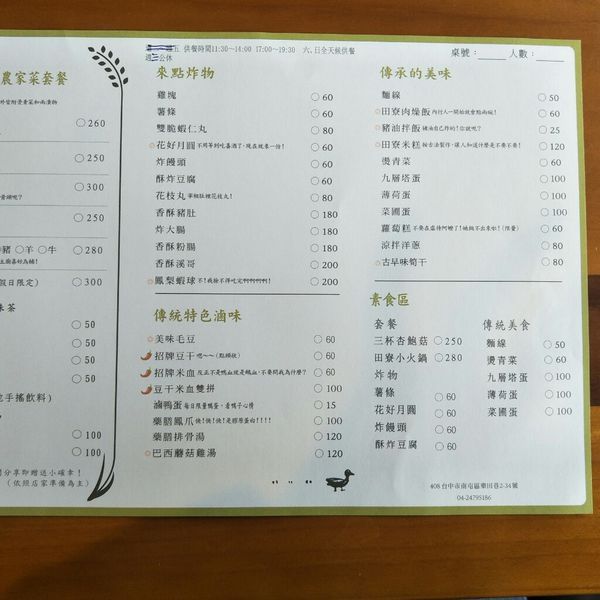 五 供餐時間11:30~14:00 17:00~19:30 六、日全天候供餐
公休
桌號：______ 人數：______
農家菜套餐
260
250
300
250
豬 ○羊 ○牛 ○ 280
假日限定) ○ 300
茶
50
50
50
50
手搖飲料)
100
100
分享即贈送小確幸！
(依照店家準備為主)
來點炸物
雞塊 ○ 60
薯條 ○ 60
雙脆蝦仁丸 ○ 80
花好月圓 不用等到吃喜酒了，現在就來一份！ ○ 60
炸饅頭 ○ 60
酥炸豆腐 ○ 60
花枝丸 ○ 80
香酥豬肚 ○ 180
炸大腸 ○ 180
香酥粉腸 ○ 180
香酥溪哥 ○ 200
鳳梨蝦球 ○ 200
傳統特色滷味
美味毛豆 ○ 60
招牌豆干 嗯～～(點頭枕) ○ 60
招牌米血 ○ 60
豆干米血雙拼 ○ 100
滷鴨蛋 每日限量鴨蛋，看鴨子心情 ○ 15
藥膳鳳爪 ○ 100
藥膳排骨湯 ○ 120
巴西蘑菇雞湯 ○ 120
傳承的美味
麵線 ○ 50
田寮肉燥飯 內行人一開始就會點兩碗！ ○ 30
豬油拌飯 豬油自己炸的！你說呢？ ○ 25
田寮米糕 按古法製作，讓人知道什麼是不要不要！ ○ 120
燙青菜 ○ 60
九層塔蛋 ○ 100
薄荷蛋 ○ 100
菜圃蛋 ○ 100
蘿蔔糕 ○ 60
涼拌洋蔥 ○ 80
古早味筍干 ○ 80
素食區
套餐
三杯杏鮑菇 ○ 250
田寮小火鍋 ○ 280
炸物
薯條 ○ 60
花好月圓 ○ 60
炸饅頭 ○ 60
酥炸豆腐 ○ 60
傳統美食
麵線 ○ 50
燙青菜 ○ 60
九層塔蛋 ○ 100
薄荷蛋 ○ 100
菜圃蛋 ○ 100
408 台中市南屯區車田巷2-34號
04-24795186